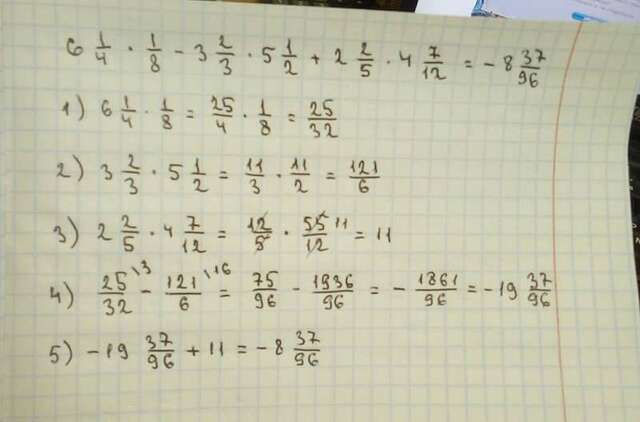 6 1/4 · 1/8 - 3 2/3 · 5 1/2 + 2 2/5 · 4 7/12 = - 8 37/96
1) 6 1/4 · 1/8 = 25/4 · 1/8 = 25/32
2) 3 2/3 · 5 1/2 = 11/3 · 11/2 = 121/6
3) 2 2/5 · 4 7/12 = 12/5 · 55/12 11 = 11
4) 25/32 \3 - 121/6 \16 = 75/96 - 1936/96 = - 1861/96 = -19 37/96
5) -19 37/96 + 11 = -8 37/96